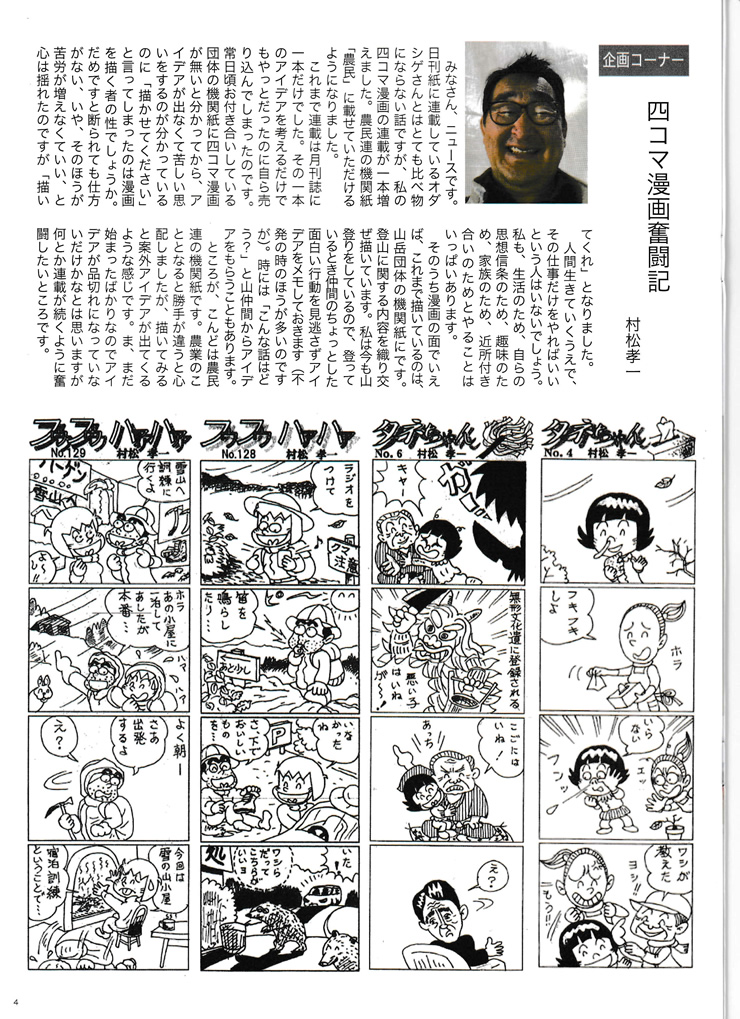 企画コーナー
四コマ漫画奮闘記
村松孝一
みなさん、ニュースです。
日刊紙に連載しているオダ
シゲさんとはとても比べ物
にならない話ですが、私の
四コマ漫画の連載が一本増
えました。農民連の機関紙
「農民」に載せていただける
ようになりました。
これまで連載は月刊誌に
一本だけでした。その一本
のアイデアを考えるだけで
もやっとだったのに自ら売
り込んでしまったのです。
常日頃お付き合いしている
団体の機関紙に四コマ漫画
が無いと分かってから、ア
イデアが出なくて苦しい思
いをするのが分かっている
のに「描かせてください」
と言ってしまったのは漫画
を描く者の性でしょうか。
だめですと断られても仕方
がない、いや、そのほうが
苦労が増えなくていい、と
心は揺れたのですが「描い
てくれ」となりました。
人間生きていくうえで、
その仕事だけをやればいい
という人はいないでしょう。
私も、生活のため、自らの
思想信条のため、趣味のた
め、家族のため、近所付き
合いのためとやることは
いっぱいあります。
そのうち漫画の面でいえ
ば、これまで描いているのは、
山岳団体の機関紙にです。
登山に関する内容を織り交
ぜ描いています。私は今も山
登りをしているので、登って
いるとき仲間のちょっとした
面白い行動を見逃さずアイ
デアをメモしておきます（不
発の時のほうが多いのです
が）。時には「こんな話はど
う？」と山仲間からアイデ
アをもらうこともあります。
ところが、こんどは農民
連の機関紙です。農業のこ
ととなると勝手が違うと心
配しましたが、描いてみる
と案外アイデアが出てくる
ような感じです。ま、まだ
始まったばかりなのでアイ
デアが品切れになっていな
いだけかなとは思いますが
何とか連載が続くように奮
闘したいところです。
タネちゃん
No.4 村松 孝一
フキフキ
しよ
ホラ
いら
ない
フンッ
エッ
ワシが
教えた
ヨシ!!
もう!!
タネちゃん
No.6 村松 孝一
ガオー
キャー
無形文化遺に登録される
悪い子
はいね
ゲ〜!
ここには
いね!
あっち
え?
フウフウ ハアハア
No.128 村松 孝一
ラジオを
つけて
クマ
注意
笛を
鳴らし
たり…
あと少し
いなかっ
たね
さ、下で
おいしい
もの
を…
P
いた
ワシら
だって
こっちが
いいヨ
処
フウフウ ハアハア
No.129 村松 孝一
バーゲン
雪山へ
雪山へ
訓練に
行くよ
よ〜し!!
ホラ
あの小屋に
一泊して
あしたが
本番…
ハァ
ハァ
よく朝ー
さあ
出発
するよ
え?
今回は
雪の山小屋
宿泊訓練
ということで…
4